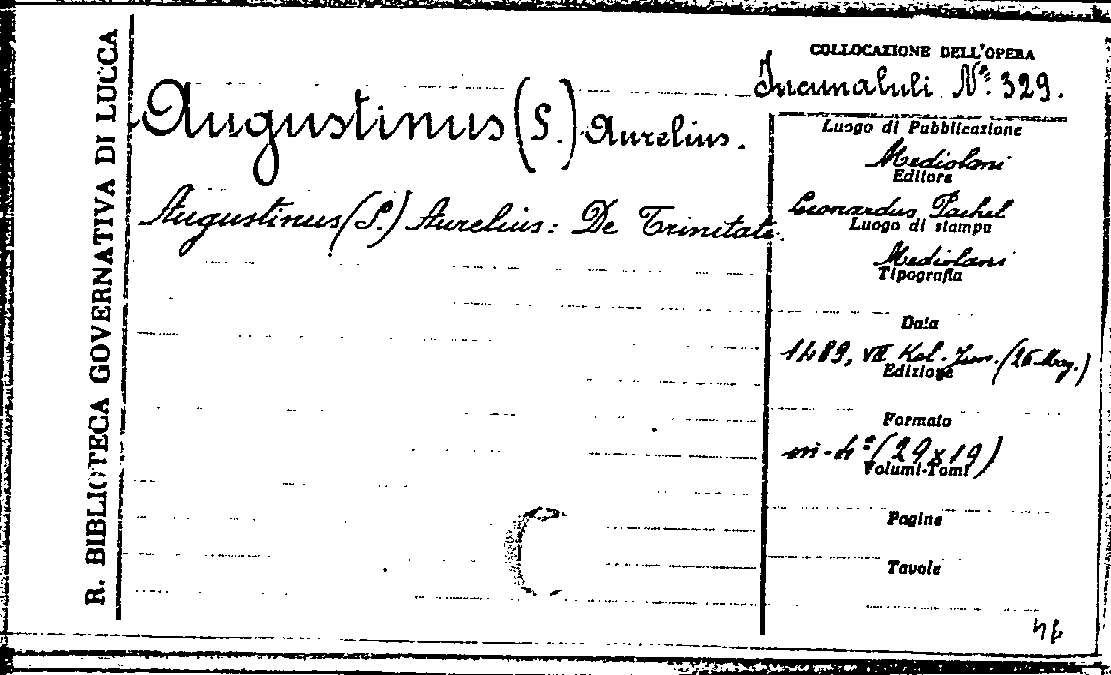 R. BIBLIOTECA GOVERNATIVA DI LUCCA
COLLOCAZIONE DELL'OPERA
Incunabuli Nº. 329.
Augustinus (S.) Aurelius.
Augustinus (S.) Aurelius: De Trinitate.
Luogo di Pubblicazione
Mediolani
Editore
Leonardus Pachel
Luogo di stampa
Mediolani
Tipografia
Data
1489, VII Kal. Jun. (26 Mag.)
Edizione
Formato
in-4º (29x19)
Volumi-Tomi
Pagine
Tavole